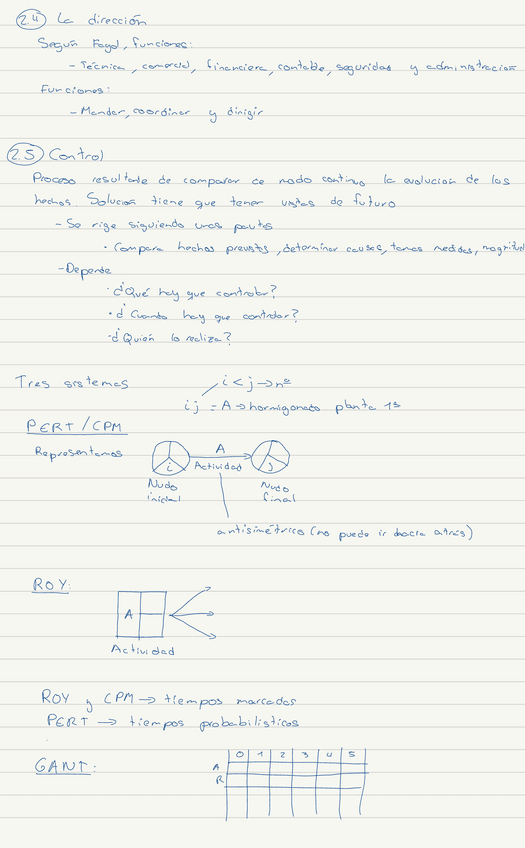 2.4 La dirección
Según Fayol, funciones:
- Técnica, comercial, financiera, contable, seguridad y administración
Funciones:
- Mandar, coordinar y dirigir
2.5 Control
Proceso resultado de comparar de modo continuo la evolución de los
hechos. Solución tiene que tener vistas de futuro
- Se rige siguiendo unas pautas
· Compara hechos previstos, determinar causas, tomas medidas, magnitud
- Depende
· ¿Qué hay que controlar?
· ¿Cuanto hay que controlar?
· ¿Quién lo realiza?
Tres sistemas
i < j → nº
ij = A → hormigonado planta 1ª
PERT/CPM
Representamos
i
A
Actividad
j
Nudo inicial
Nudo final
antisimétrico (no puede ir hacia atrás)
ROY:
A
Actividad
ROY y CPM → tiempos marcados
PERT → tiempos probabilísticos
GANT:
0 1 2 3 4 5
A
R